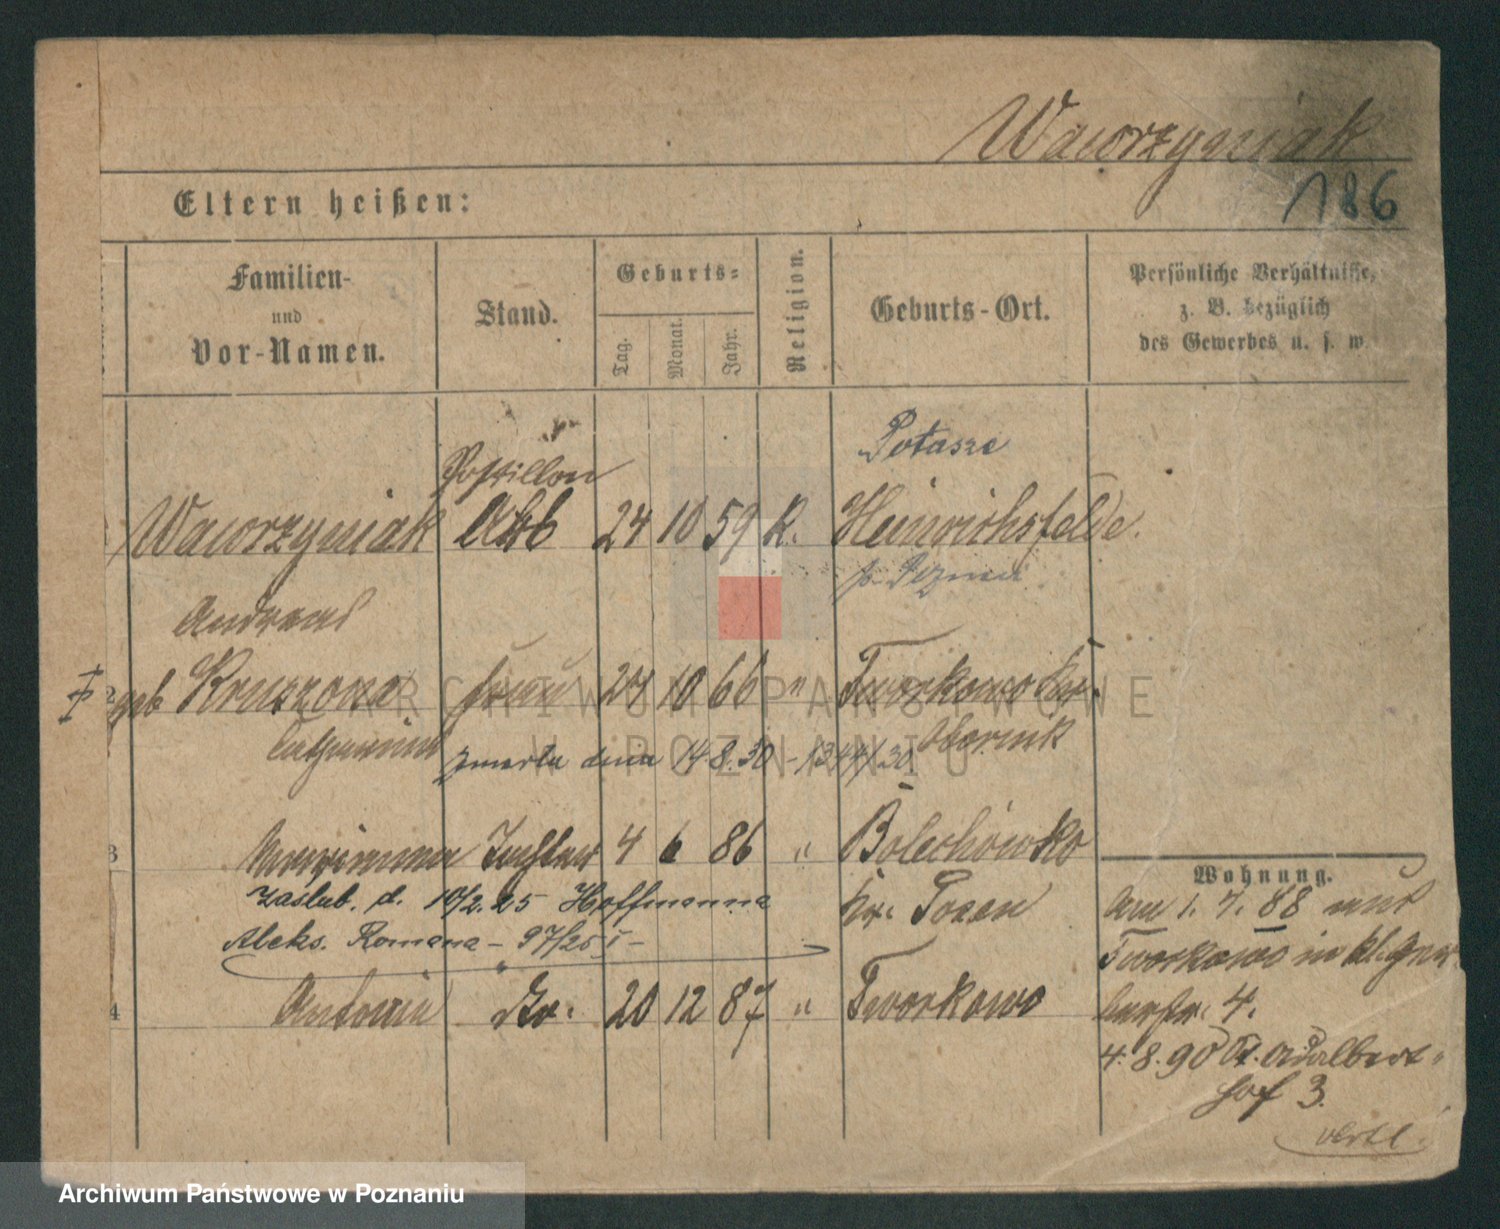 Wawrzyniak
186
Eltern heißen:
Familien-
und
Vor-Namen.
Stand.
Geburts-
Tag.
Monat.
Jahr.
Religion.
Geburts-Ort.
Persönliche Verhältnisse,
z. B. bezüglich
des Gewerbes u. s. w.
Potasze
Postillon
Wawrzyniak 24 10 59 k. Heinrichsfelde.
Andreas
2 geb Kruszona Frau 24 10 66 " Tworkowo Kr.
Obornik
zmarła dnia 14.8.30 - 1344/30
3 Marianna Tochter 4 6 86 " Bolechówko
zaślub. d. 10/2.25 Hoffmanna Kr. Posen
Aleks. Romana - 97/25 I -
4 Antonie do. 20 12 87 " Tworkowo
Wohnung.
Am 1. 7. 88 aus
Tworkowo in kl. Ger-
berstr. 4.
4. 8. 90 St. Adalbert-
hof 3.
vertl.
ARCHIWUM PAŃSTWOWE
W POZNANIU
Archiwum Państwowe w Poznaniu